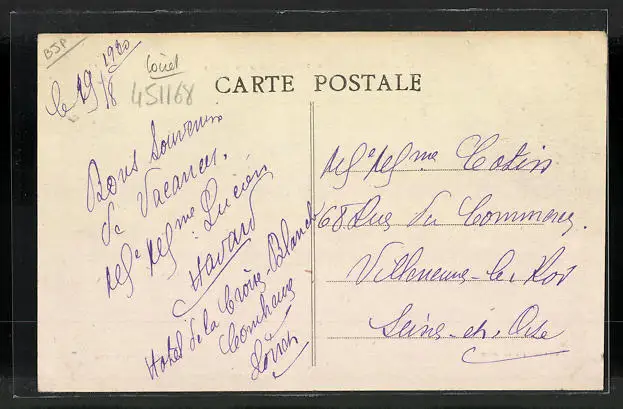 BJP
Loiret
451168
CARTE POSTALE
le 19/8 1920
Bons Souvenirs
de Vacances.
Mr Mme Lucien
Havard
Hotel de la Croix Blanche
Combreux
Loiret
Mr Mme Cotin
68 Rue du Commerce.
Villeneuve-le-Roi
Seine-et-Oise